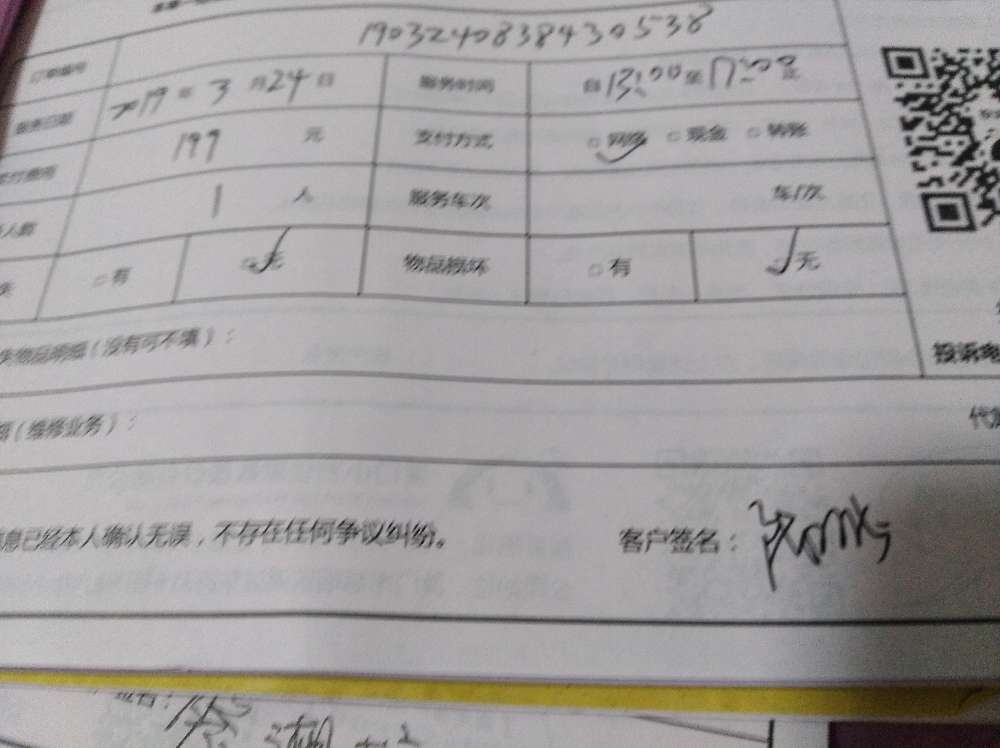 订单编号 190324083843 0538
服务日期 2019 年 3 月 24 日 服务时间 自 13:00 至 17:00 止
支付费用 199 元 支付方式 □ 网络 □ 现金 □ 转账
人数 1 人 服务车次 车/次
□ 有 □ 无 物品损坏 □ 有 □ 无
物品明细（没有可不填）：
投诉电
（维修业务）：
息已经本人确认无误，不存在任何争议纠纷。 客户签名：
签名：